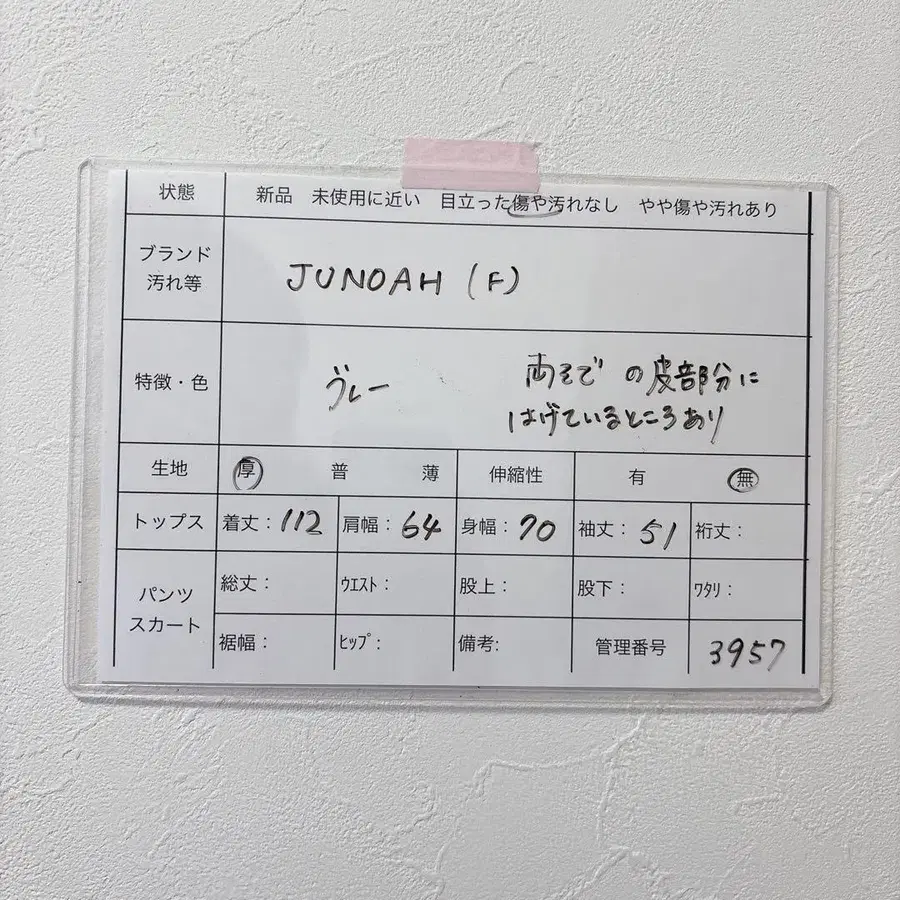 状態 新品 未使用に近い 目立った傷や汚れなし やや傷や汚れあり
ブランド
汚れ等
JUNOAH (F)
特徴・色
グレー
両そでの皮部分に
はげているところあり
生地 厚 普 薄 伸縮性 有 無
トップス 着丈:112 肩幅:64 身幅:70 袖丈:51 裄丈:
パンツ
スカート
総丈: ウエスト: 股上: 股下: ワタリ:
裾幅: ヒップ: 備考: 管理番号 3957